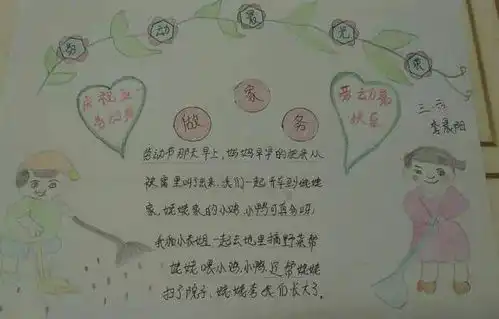 劳动最光荣
庆祝五一
劳动节
做家务
劳动最
快乐
三、六
劳动节那天早上,妈妈早早的把我从
被窝里叫起来,我们一起开车到姥姥
家,姥姥家的小鸡,小鸭可真多呀,
我和小表姐一起去地里摘野菜帮
姥姥喂小鸡、小鸭,还帮姥姥
扫了院子,姥姥夸我们长大了。